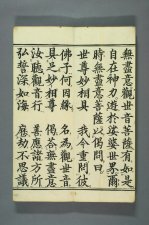 無盡意觀世音菩薩有如是
自在神力遊於娑婆世界爾
時無盡意菩薩以偈問曰
世尊妙相具　我今重問彼
佛子何因緣　名為觀世音
具足妙相尊　偈荅無盡意
汝聽觀音行　善應諸方所
弘誓深如海　歷劫不思議